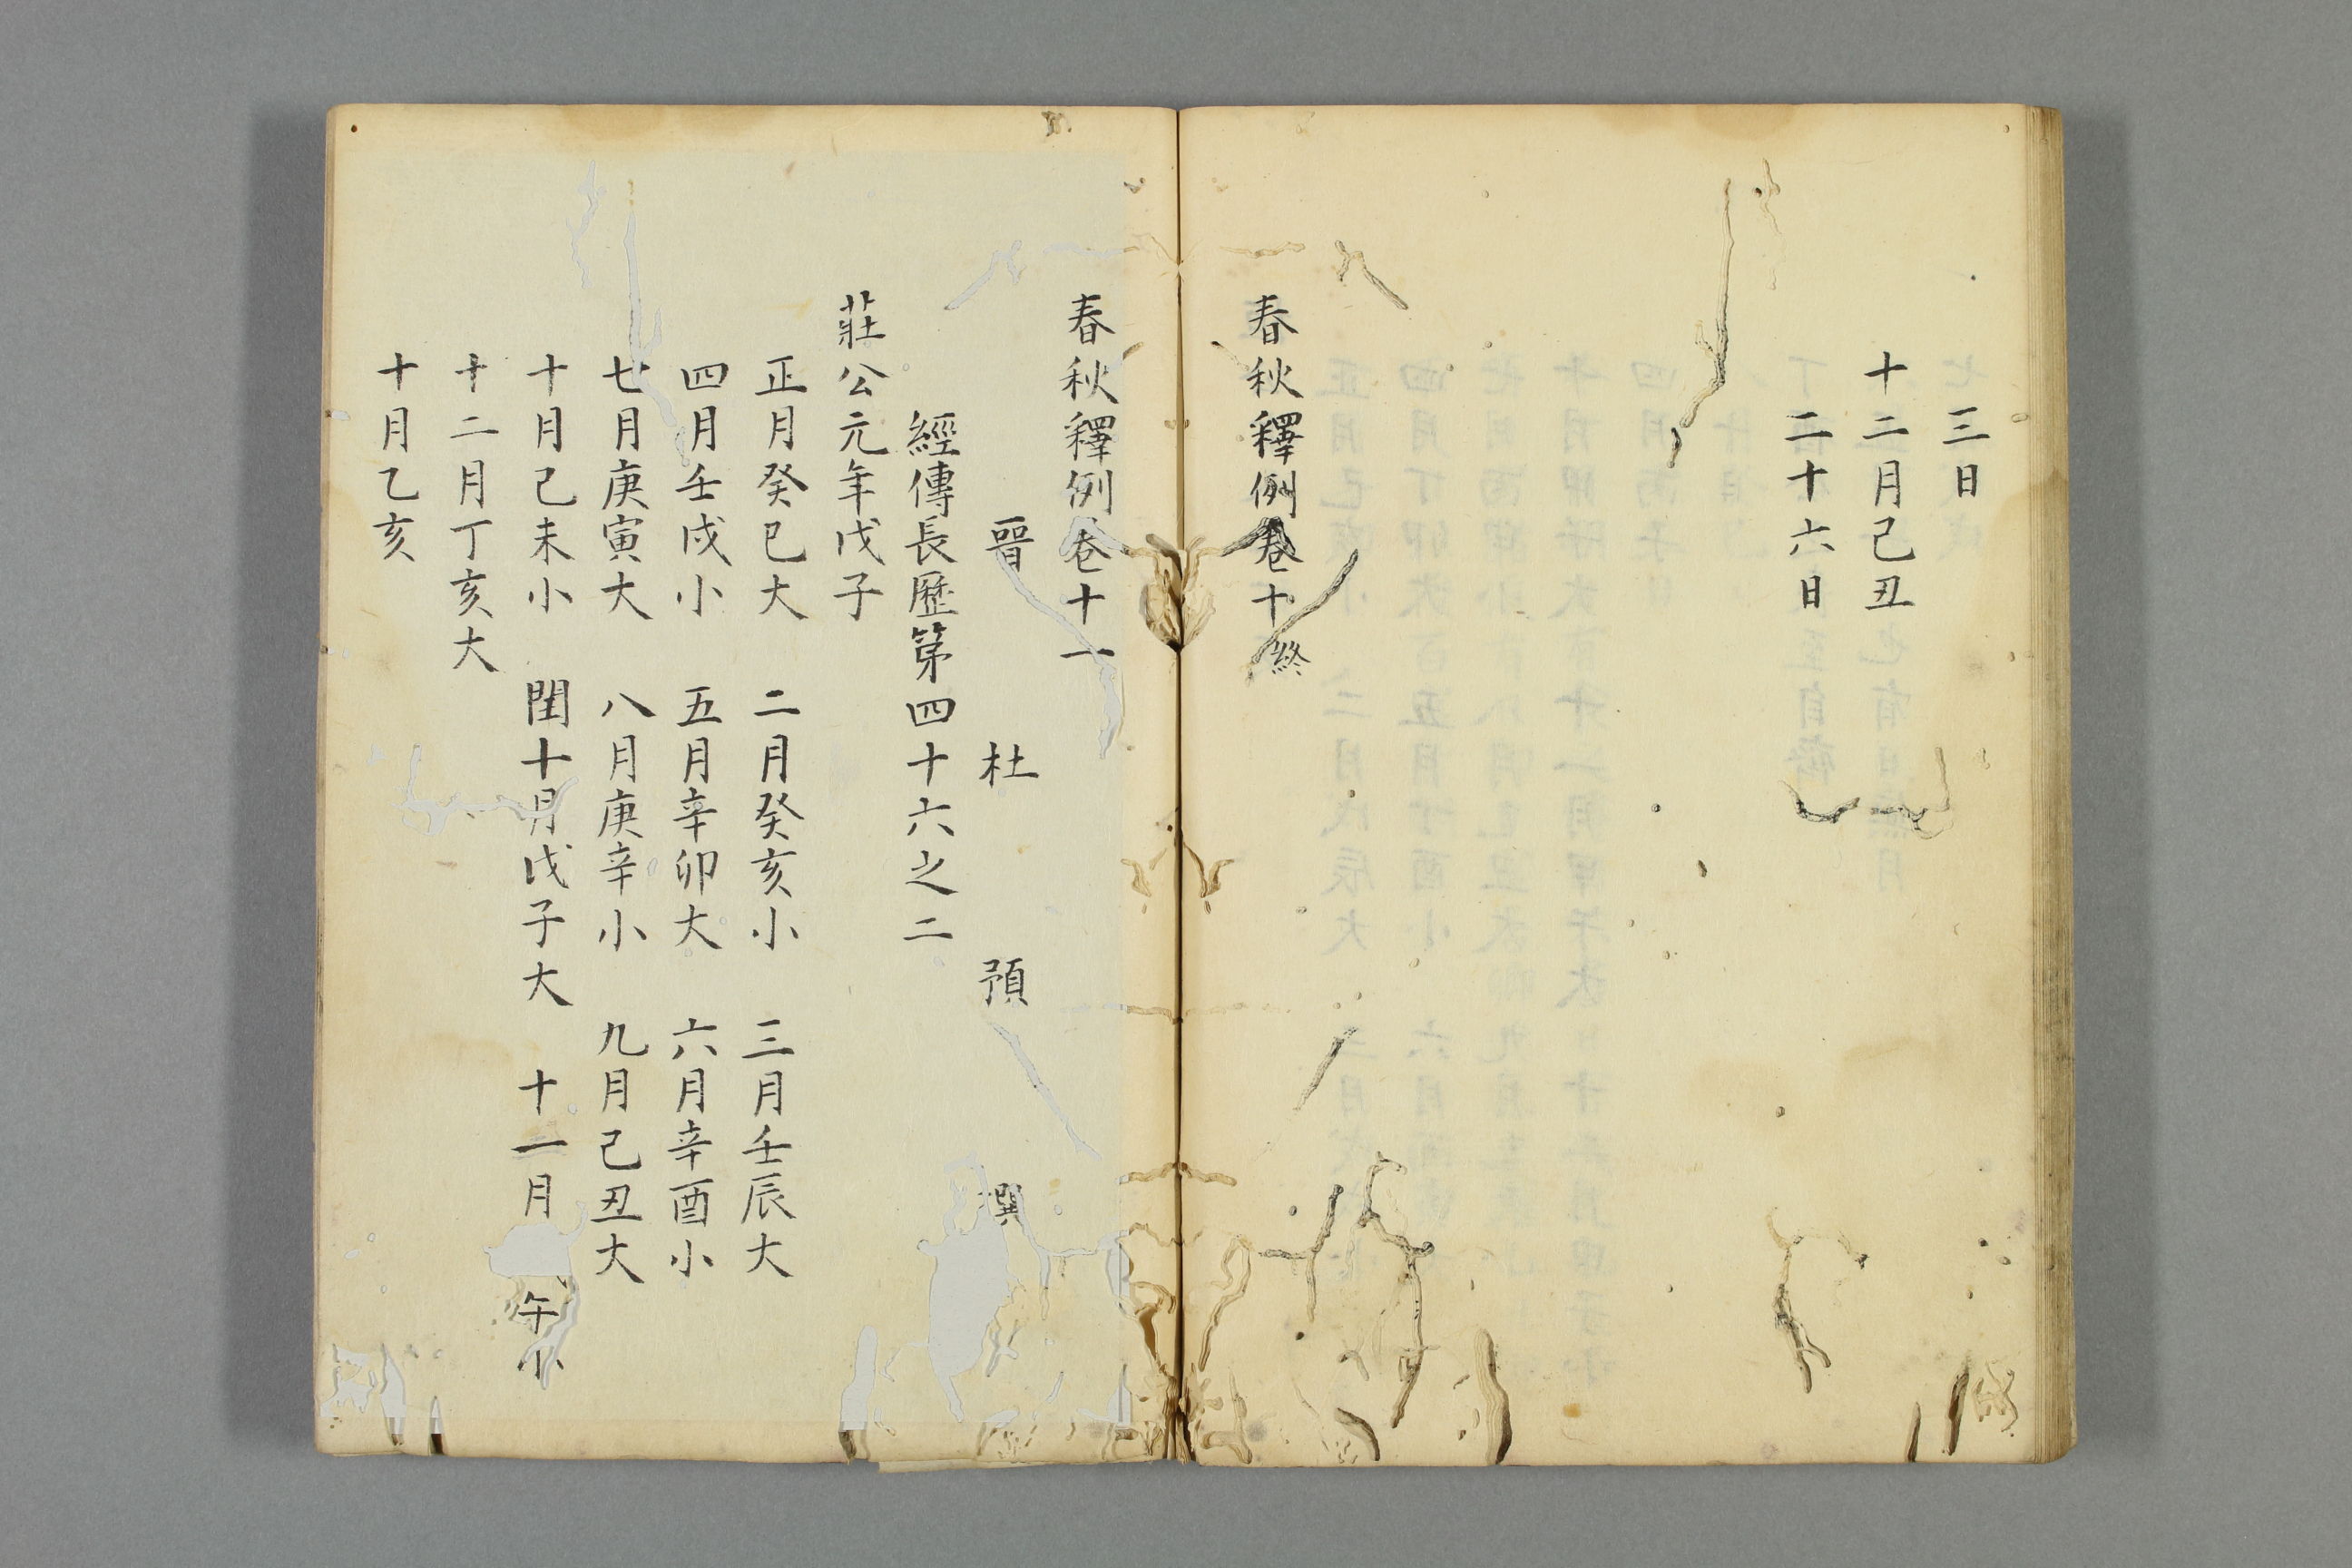 三日
十二月己丑
二十六日
春秋釋例卷十終
春秋釋例卷十一
晉 杜 預 撰
經傳長歷第四十六之二
莊公元年戊子
正月癸巳大 二月癸亥小 三月壬辰大
四月壬戌小 五月辛卯大 六月辛酉小
七月庚寅大 八月庚辛小 九月己丑大
十月己未小 閏十月戊子大 十一月 午小
十二月丁亥大
十月乙亥